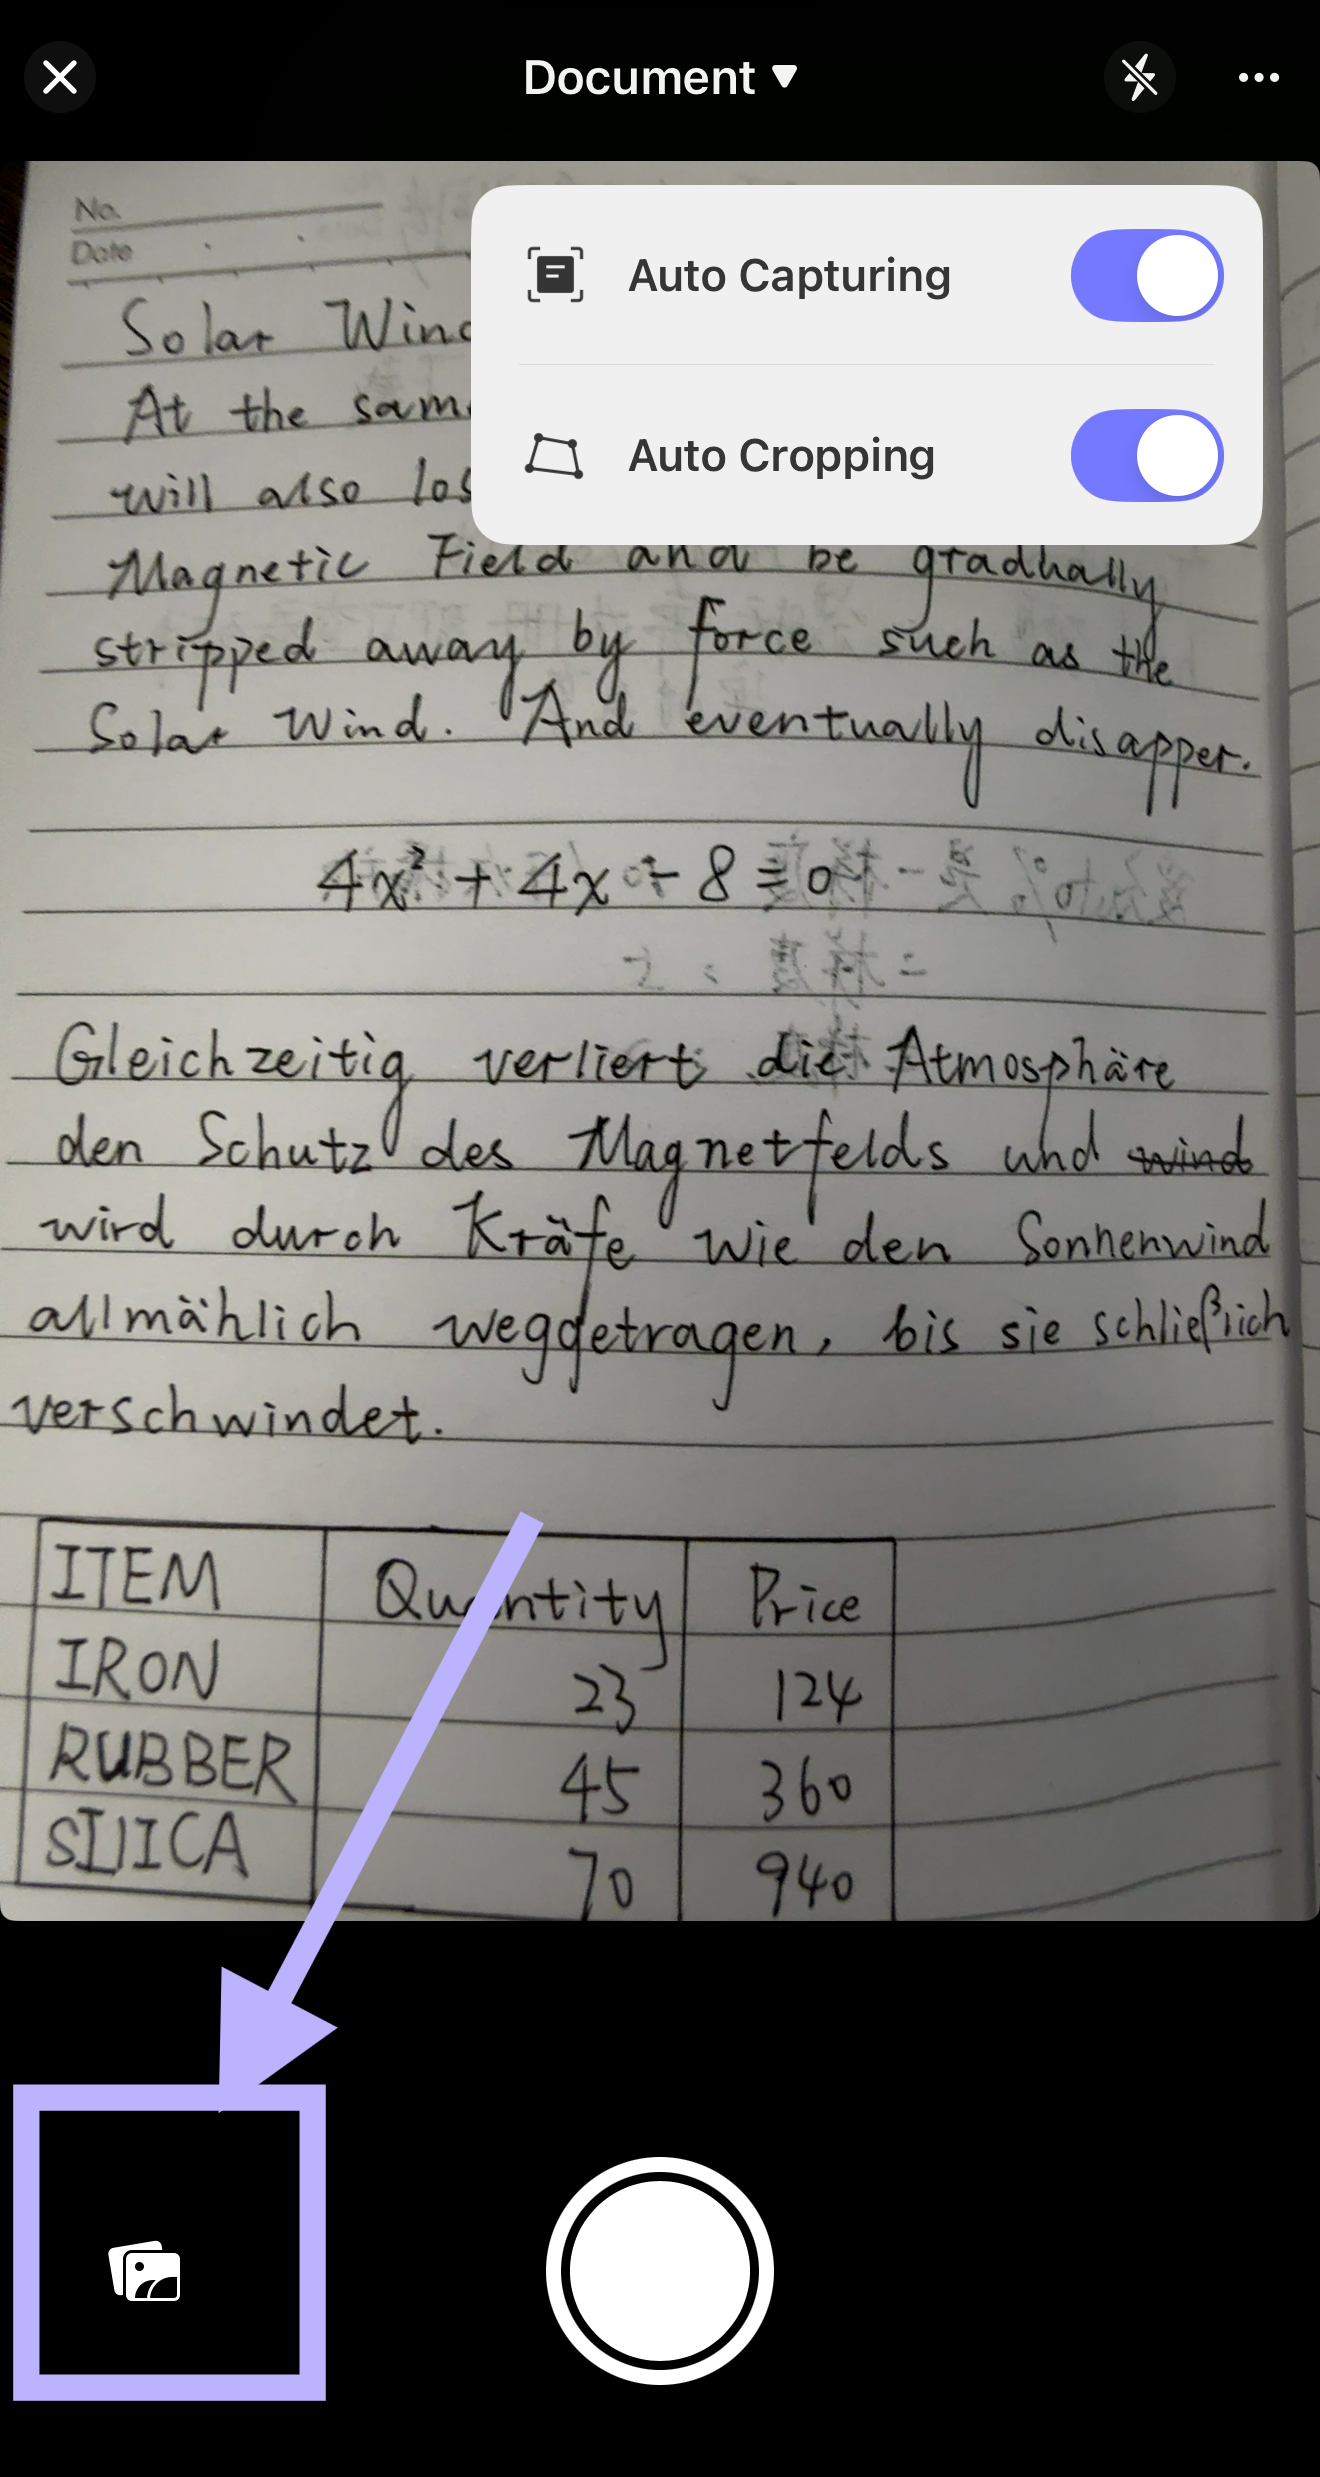 Document
Auto Capturing
Auto Cropping
No.
Date
Solar Wind
At the same
will also los
Magnetic Field and be gradhally
stripped away by force such as the
Solar Wind. And eventually disapper.
4x² + 4x - 8 = 0
Gleichzeitig verliert die Atmosphäre
den Schutz des Magnetfelds und wind
wird durch Kräfe wie den Sonnenwind
allmählich weggetragen, bis sie schließlich
verschwindet.
ITEM Quantity Price
IRON 23 124
RUBBER 45 360
SILICA 70 940